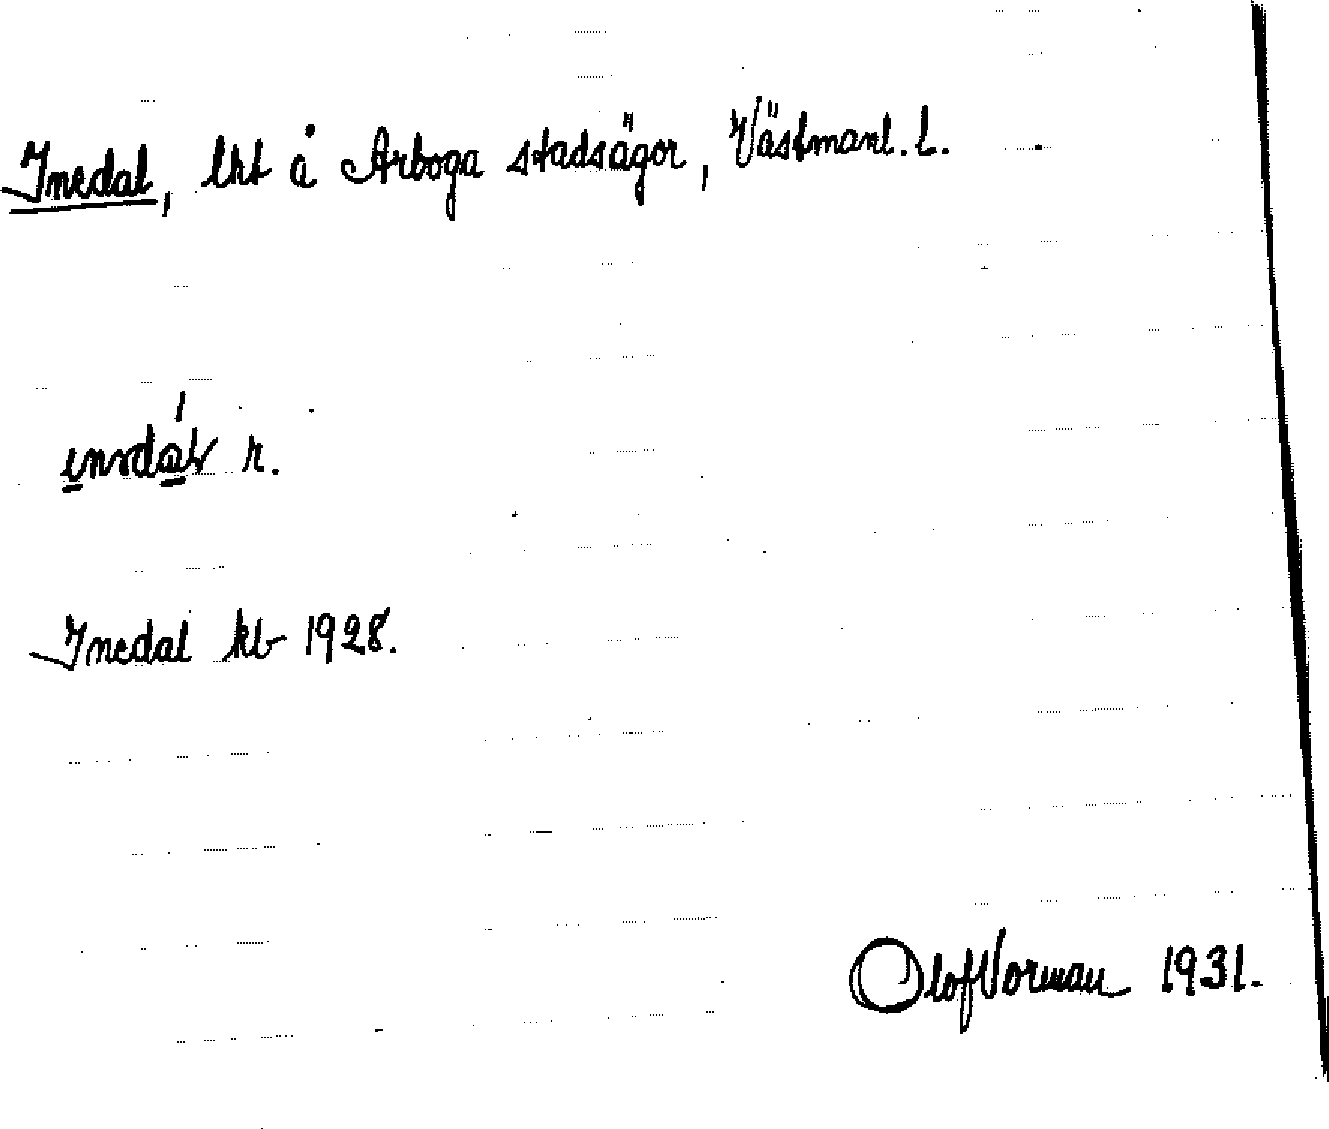 Inedal, lht å Arboga stadsägor, Västmanl. L.
r.
Inedal kb 1928.
Olof Vorman 1931.